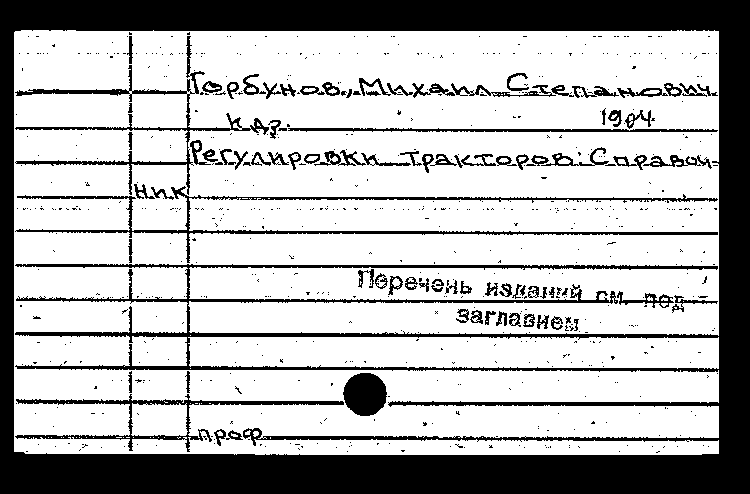 Горбунов, Михаил Степанович
и др. 1904
Регулировки тракторов: Справоч-
ник
Перечень изданий см. под
заглавием
проф